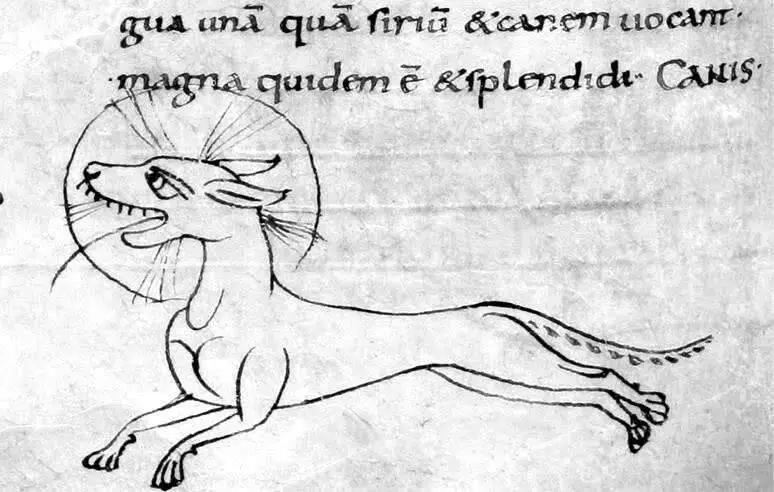 gua unā quā siriū &canem uocant·
·magna quidem ē &splendidi· CANIS·